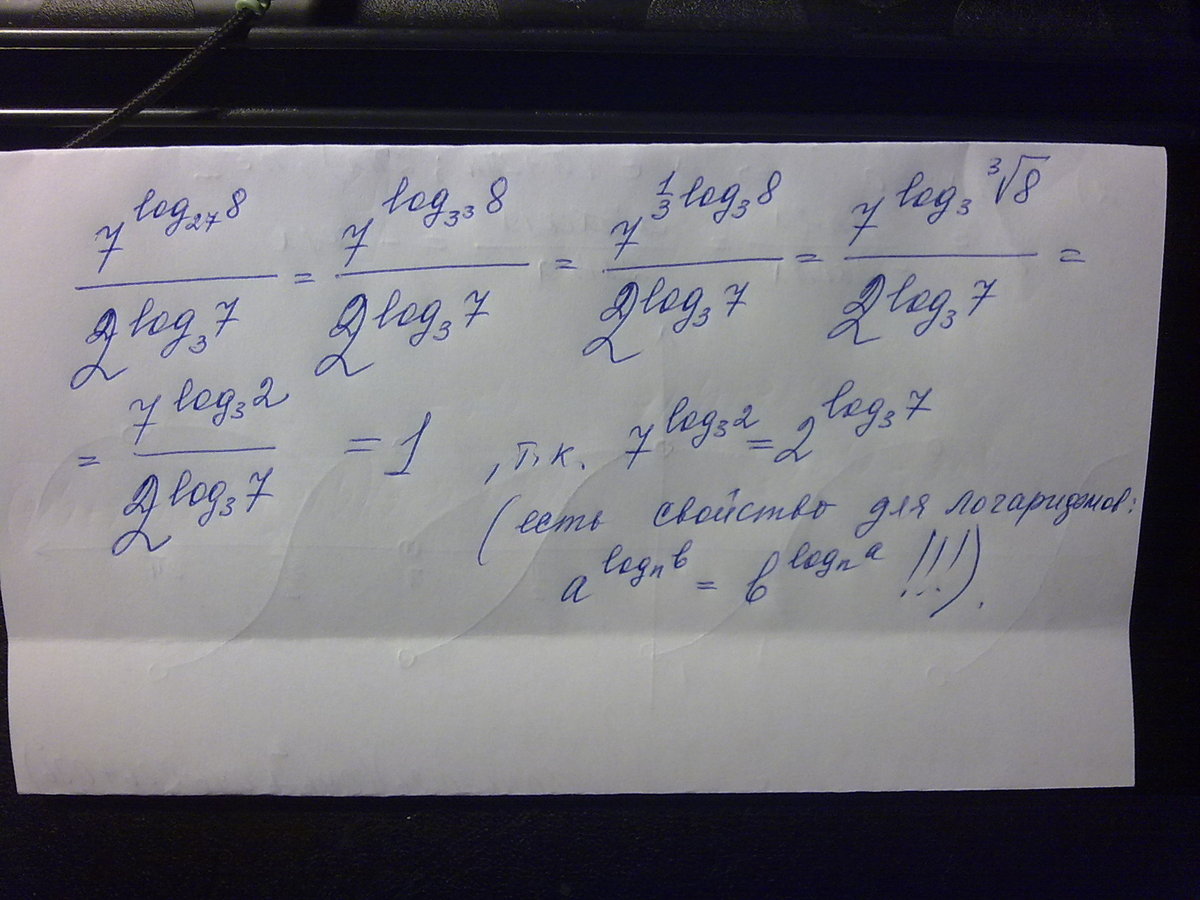 7^{log_{27} 8} / 2^{log_3 7} = 7^{log_{3^3} 8} / 2^{log_3 7} = 7^{1/3 log_3 8} / 2^{log_3 7} = 7^{log_3 ∛8} / 2^{log_3 7} =
= 7^{log_3 2} / 2^{log_3 7} = 1 , т.к. 7^{log_3 2} = 2^{log_3 7}
(есть свойство для логарифмов:
a^{log_n b} = b^{log_n a} !!!).